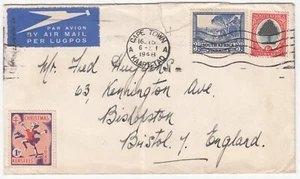 PAR AVION
BY AIR MAIL
PER LUGPOS
CAPE TOWN
KAAPSTAD
SOUTH AFRICA
Mr. Fred
63, Kennington Ave
Bishopston
Bristol 7, England.
CHRISTMAS
KERSFEES